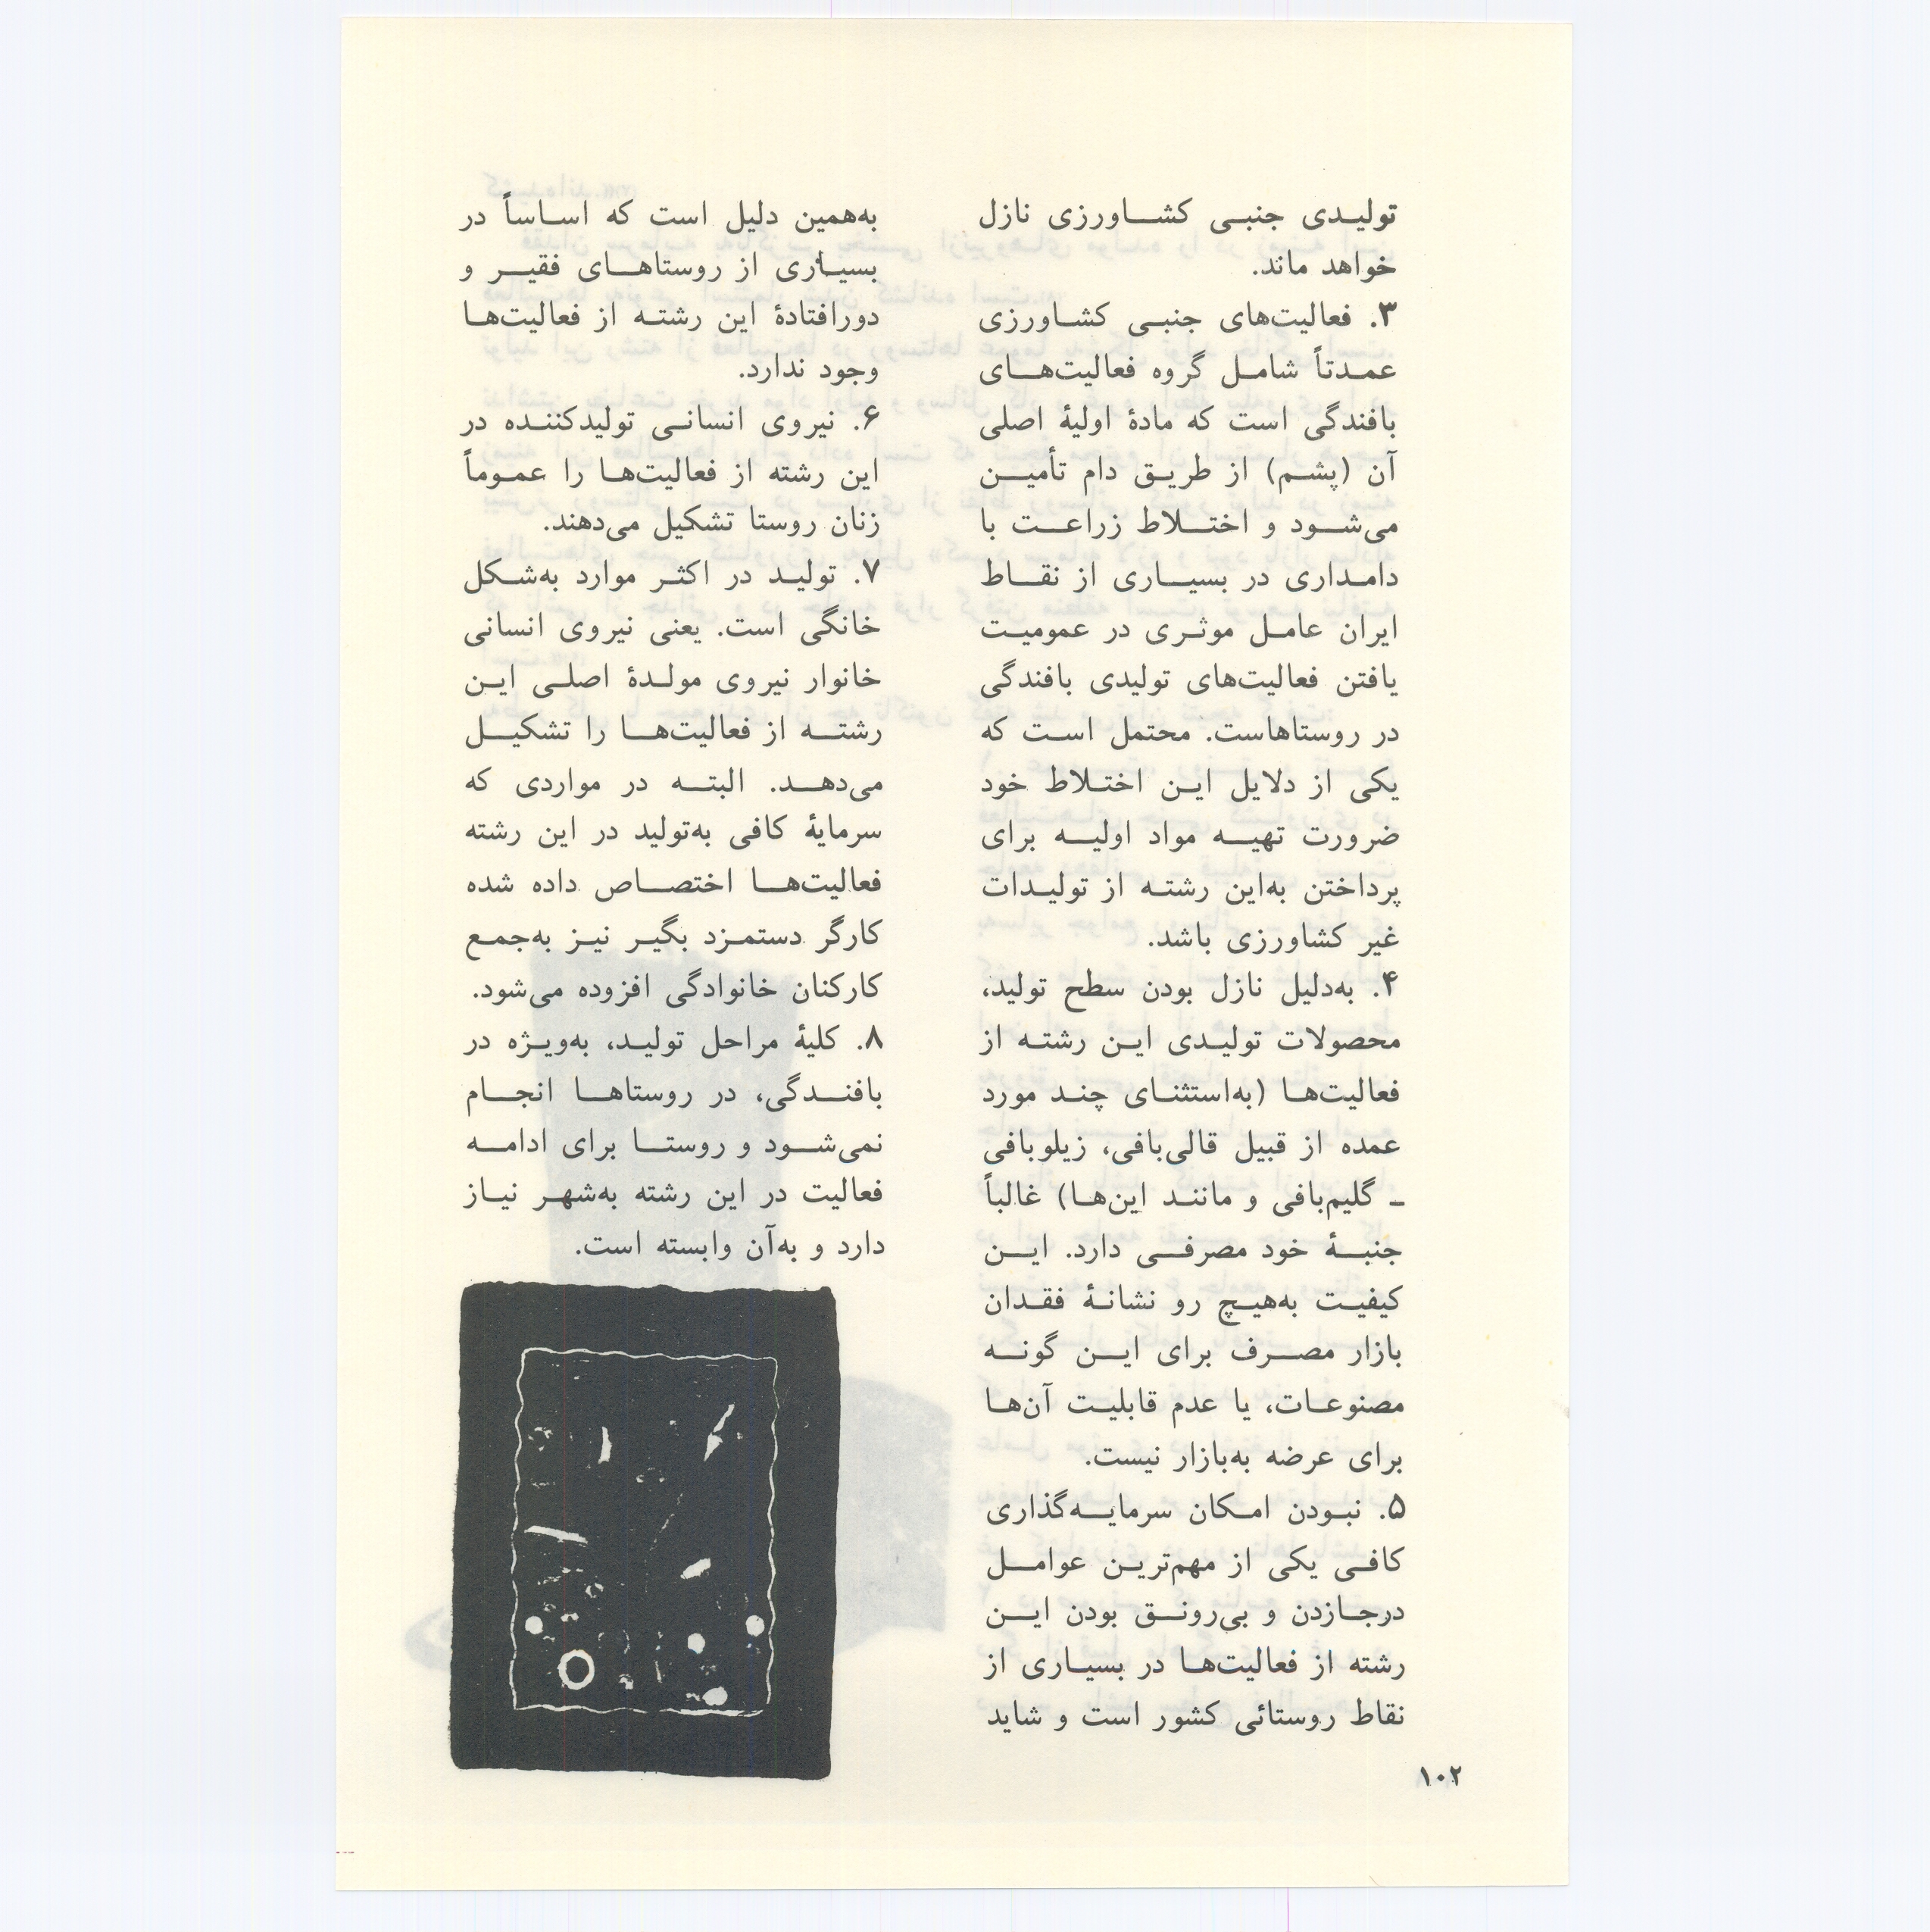 تولیدی جنبی کشاورزی نازل
خواهد ماند.
۳. فعالیت‌های جنبی کشاورزی
عمدتاً شامل گروه فعالیت‌های
بافندگی است که مادهٔ اولیهٔ اصلی
آن (پشم) از طریق دام تأمین
می‌شود و اختلاط زراعت با
دامداری در بسیاری از نقاط
ایران عامل موثری در عمومیت
یافتن فعالیت‌های تولیدی بافندگی
در روستاهاست. محتمل است که
یکی از دلایل این اختلاط خود
ضرورت تهیه مواد اولیه برای
پرداختن به‌این رشته از تولیدات
غیر کشاورزی باشد.
۴. به‌دلیل نازل بودن سطح تولید،
محصولات تولیدی این رشته از
فعالیت‌ها (به‌استثنای چند مورد
عمده از قبیل قالی‌بافی، زیلوبافی
ـ گلیم‌بافی و مانند این‌ها) غالباً
جنبهٔ خود مصرفی دارد. این
کیفیت به‌هیچ رو نشانهٔ فقدان
بازار مصرف برای این گونه
مصنوعات، یا عدم قابلیت آن‌ها
برای عرضه به‌بازار نیست.
۵. نبودن امکان سرمایه‌گذاری
کافی یکی از مهم‌ترین عوامل
درجازدن و بی‌رونق بودن این
رشته از فعالیت‌ها در بسیاری از
نقاط روستائی کشور است و شاید
به‌همین دلیل است که اساساً در
بسیاری از روستاهای فقیر و
دورافتادهٔ این رشته از فعالیت‌ها
وجود ندارد.
۶. نیروی انسانی تولیدکننده در
این رشته از فعالیت‌ها را عموماً
زنان روستا تشکیل می‌دهند.
۷. تولید در اکثر موارد به‌شکل
خانگی است. یعنی نیروی انسانی
خانوار نیروی مولدهٔ اصلی این
رشته از فعالیت‌ها را تشکیل
می‌دهد. البته در مواردی که
سرمایهٔ کافی به‌تولید در این رشته
فعالیت‌ها اختصاص داده شده
کارگر دستمزد بگیر نیز به‌جمع
کارکنان خانوادگی افزوده می‌شود.
۸. کلیهٔ مراحل تولید، به‌ویژه در
بافندگی، در روستاها انجام
نمی‌شود و روستا برای ادامه
فعالیت در این رشته به‌شهر نیاز
دارد و به‌آن وابسته است.
۱۰۲